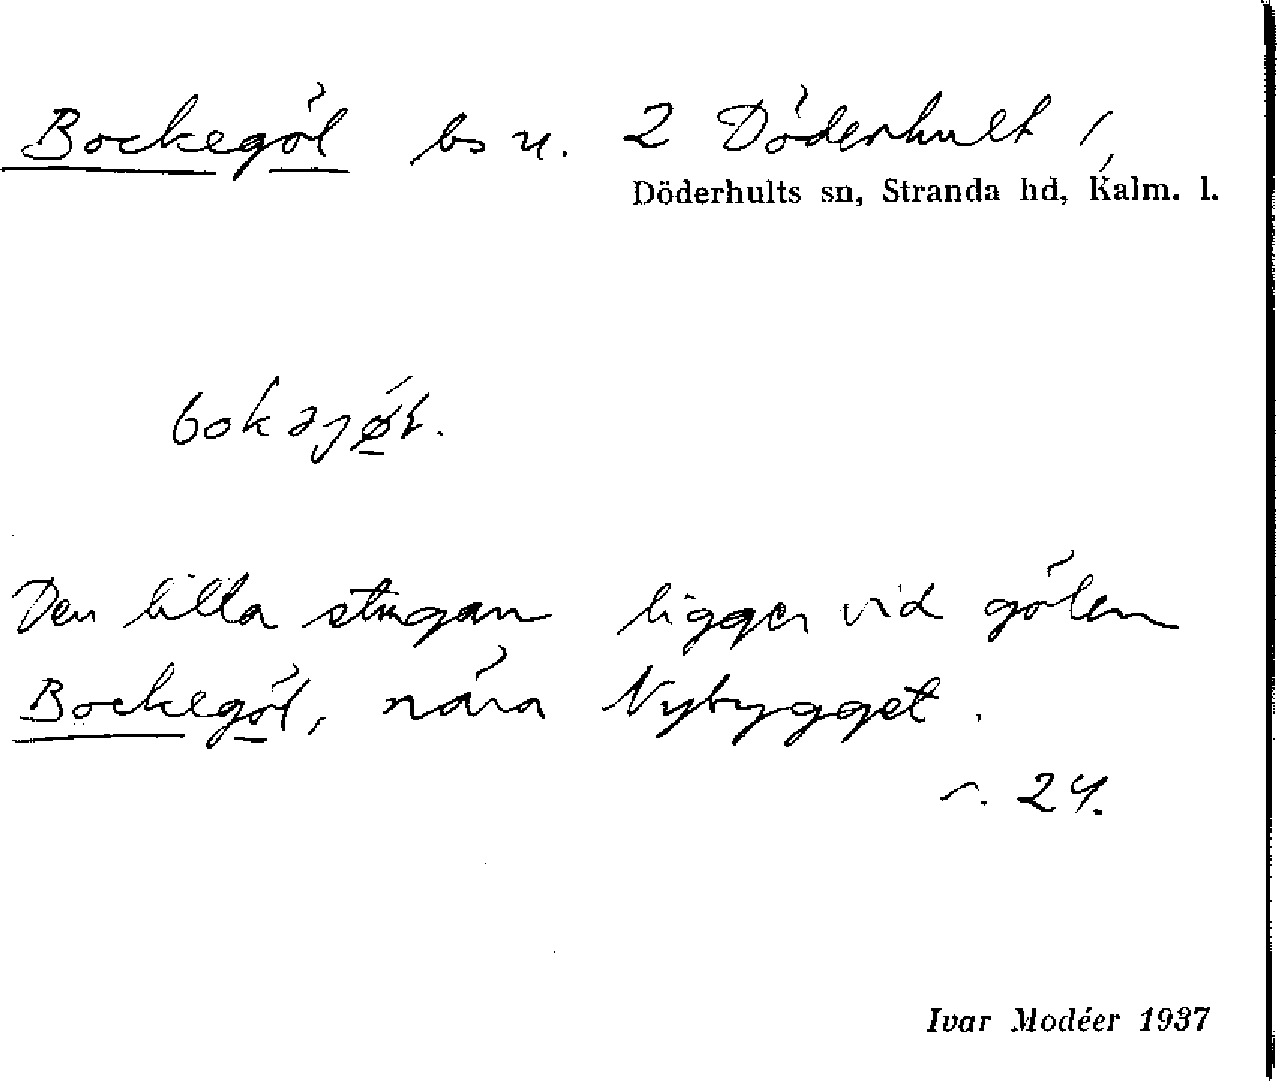 Bockegöl bs u. 2 Döderhult
Döderhults sn, Stranda hd, Kalm. l.
Den lilla stugan ligger vid gölen
Bockegöl, nära Nybygget.
24.
Ivar Modéer 1937